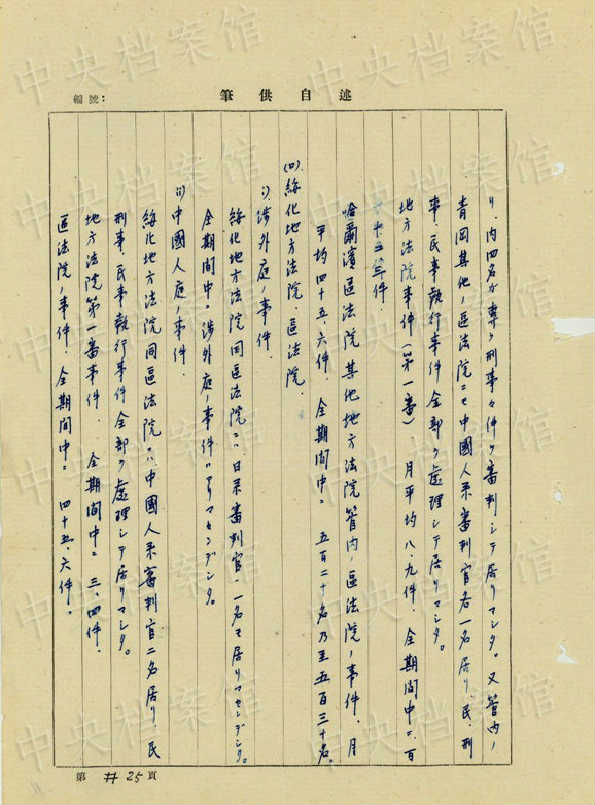 編號：
述自供筆
リ、内四名ガ専ラ刑事々件ヲ審判シテ居リマシタ。又管内ノ
青岡其他ノ區法院ニモ中國人系審判官各一名居リ、民、刑
事、民事執行事件全部ヲ處理シテ居リマシタ。
地方法院事件(第一審) 月平均八、九件、全期間中ニ百
十五、六件.
哈爾濱區法院其他地方法院管内ノ區法院ノ事件、月
平均四十五、六件、全期間中ニ 五百二十名乃至五百三十名。
(四)綏化地方法院、區法院、
i)渉外庭ノ事件、
綏化地方法院同區法院ニハ日系審判官ハ一名モ居リマセンデシタ。
全期間中ニ渉外庭ノ事件ハアリマセンデシタ。
ii)中國人庭ノ事件、
綏化地方法院同區法院ニハ中國人系審判官二名居リ、民
刑事、民事執行事件全部ヲ處理シテ居リマシタ。
地方法院第一審事件、全期間中ニ 三、四件、
區法院ノ事件、全期間中ニ 四十五、六件。
第 廿 25 頁
中央档案馆